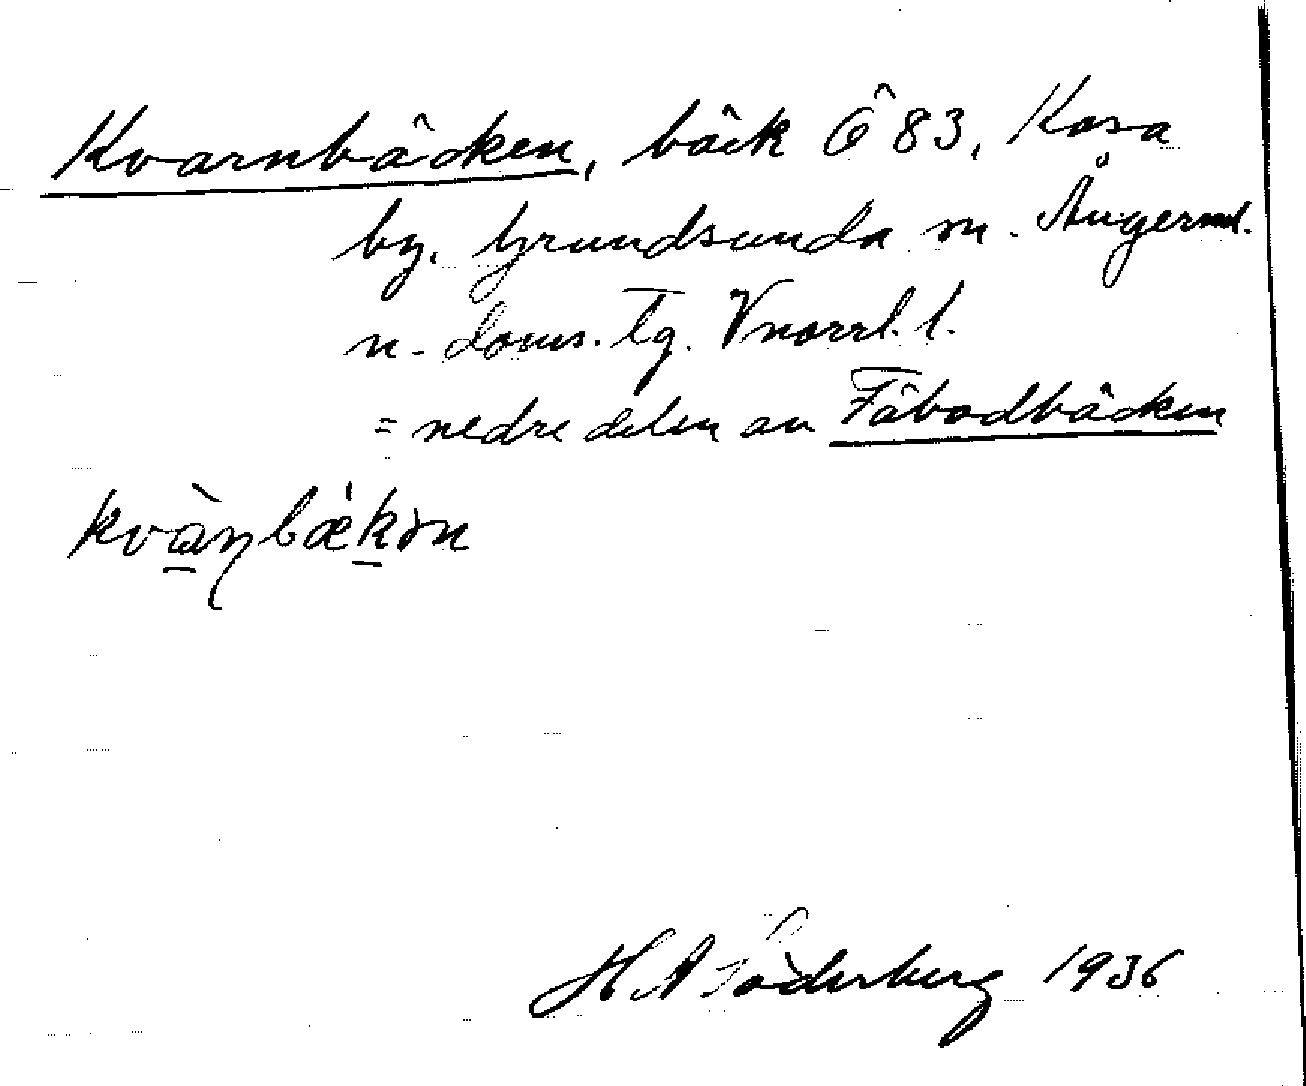 Kvarnbäcken, bäck Ö 83, Kasa
by. Grundsunda sn. Ångerml.
n. doms. Tg. Vnorrl. l.
= nedre delen av Fäbodbäcken
kvàɳbækən
H A Söderberg 1936